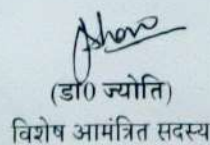 (डॉ0 ज्योति)
विशेष आमंत्रित सदस्य